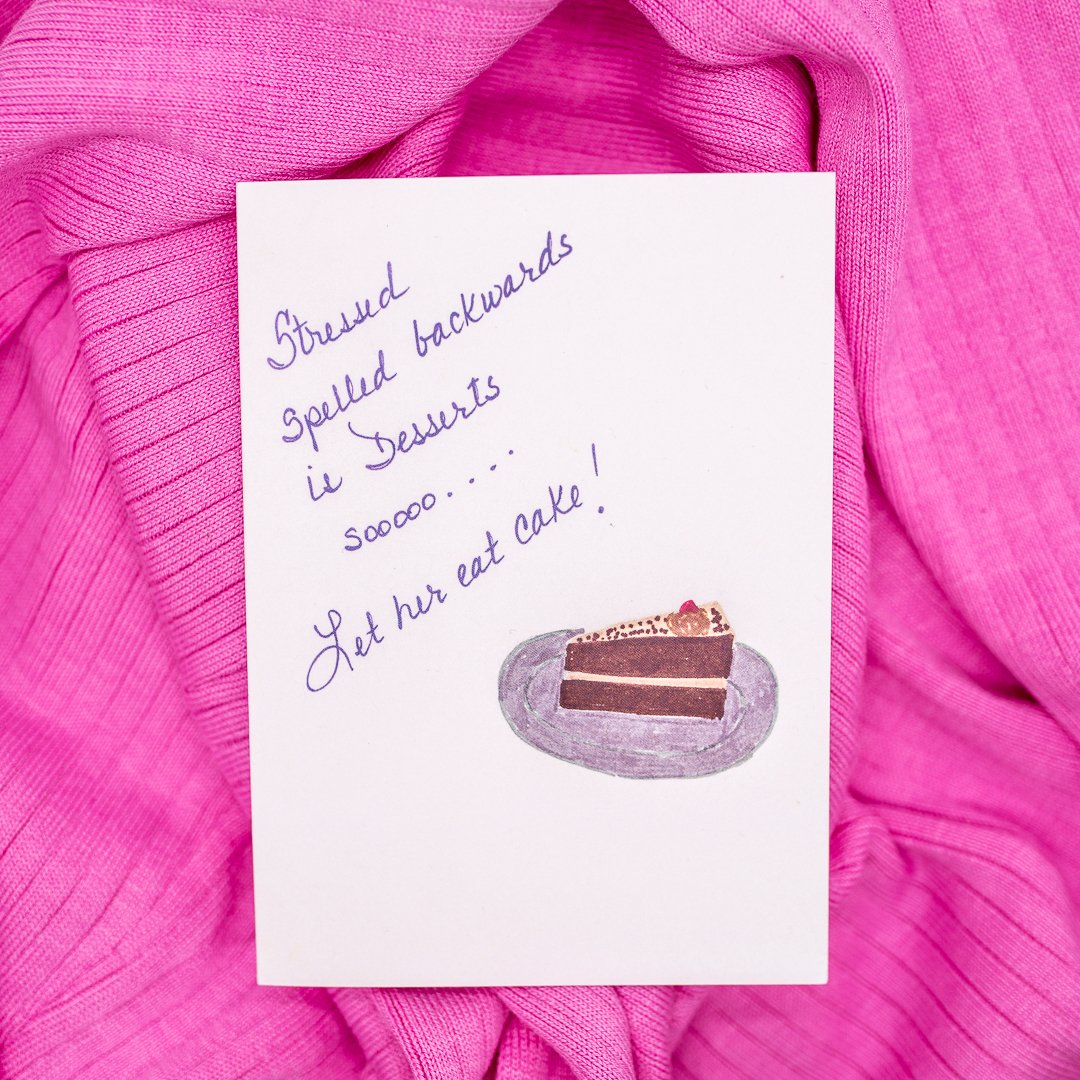 Stressed
spelled backwards
is Desserts
sooooo....
Let her eat cake!